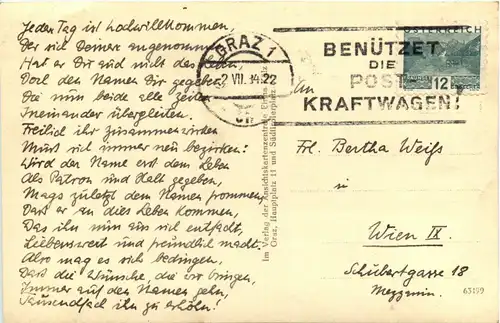 Jeden Tag ist hochwillkommen,
Der sich Deiner angenommen,
Hat er Dir auch nicht das Leben,
Doch den Namen Dir gegeben,
Die nun beide alle Zeiten
Ineinander übergleiten.
Freilich ihr Zusammenwirken
Muss sich immer neu bezirken:
Wird der Name erst dem Leben
Als Patron und Halt gegeben,
Mags zuletzt dem Namen frommen,
Dass er an dies Leben kommen,
Das ihn nun aus sich entfacht,
Liebenswert und freundlich macht.
Also mag es sich bedingen,
Dass die Wünsche, die wir bringen,
Immer auf den Namen gehn,
Tausendfach ihn zu erhöhn!
GRAZ 1
2 VII. 34 22
BENÜTZET
DIE
POST-
KRAFTWAGEN!
ÖSTERREICH
12
Im Verlag der Ansichtskartenzentrale
Graz, Hauptplatz 11 und Südtirolerplatz
An
Frl. Bertha Weiss
in
Wien IX.
Schubertgasse 18
Mezzanin.
63199